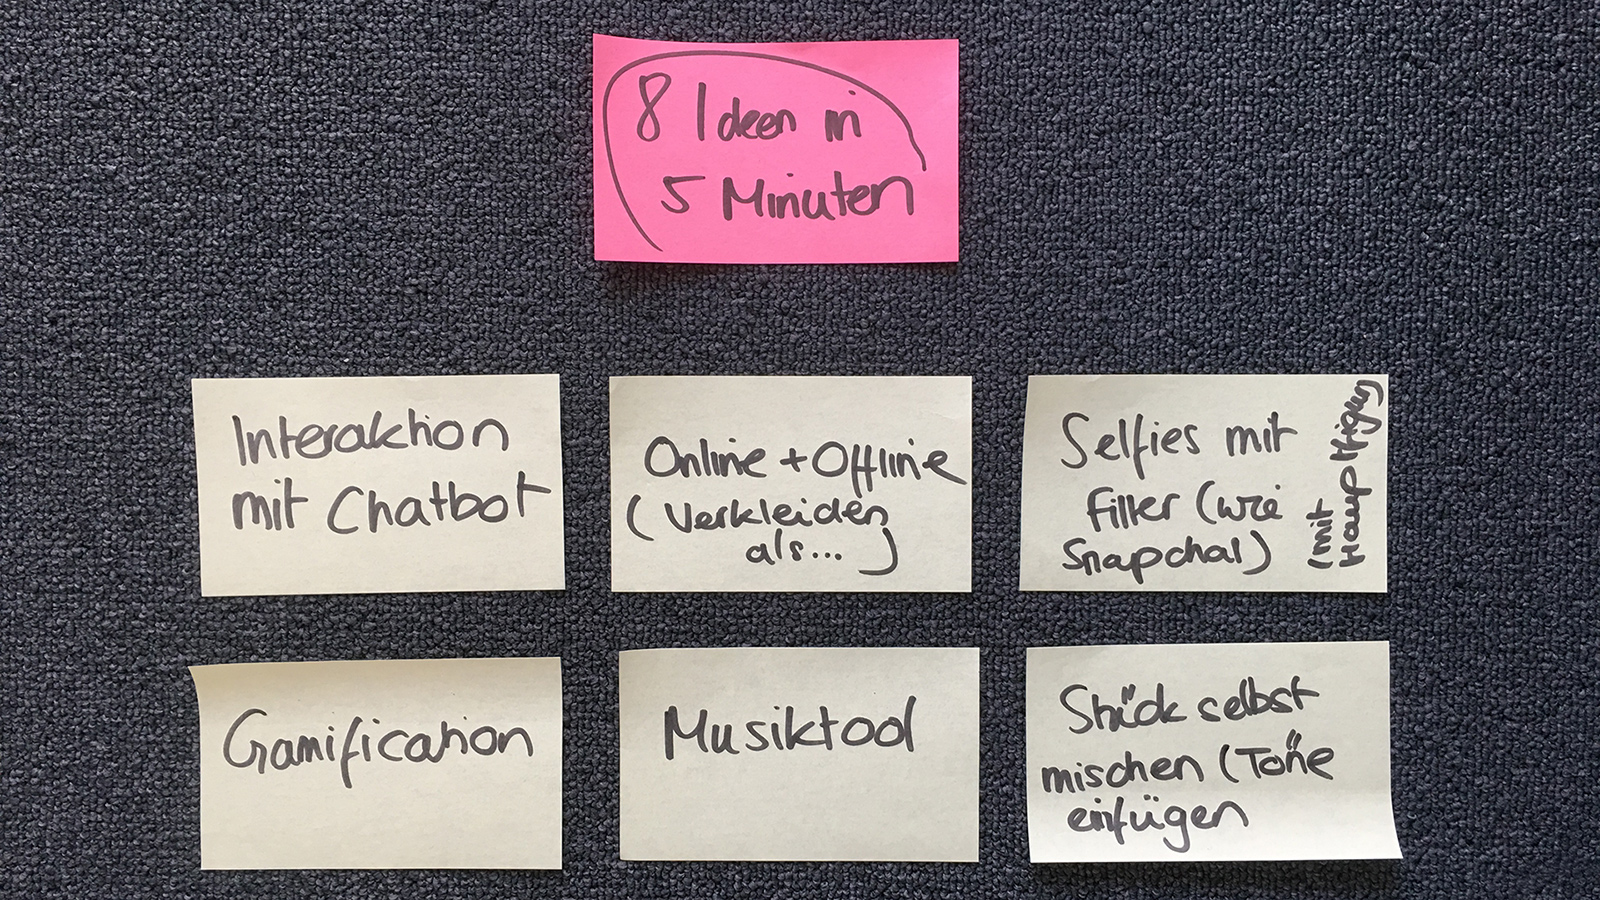 8 Ideen in
5 Minuten
Interaktion
mit Chatbot
Online + Offline
(Verkleiden
als...)
Selfies mit
Filter (wie
Snapchat)
(mit
Hauptfigur)
Gamification
Musiktool
Stück selbst
mischen (Töne
einfügen